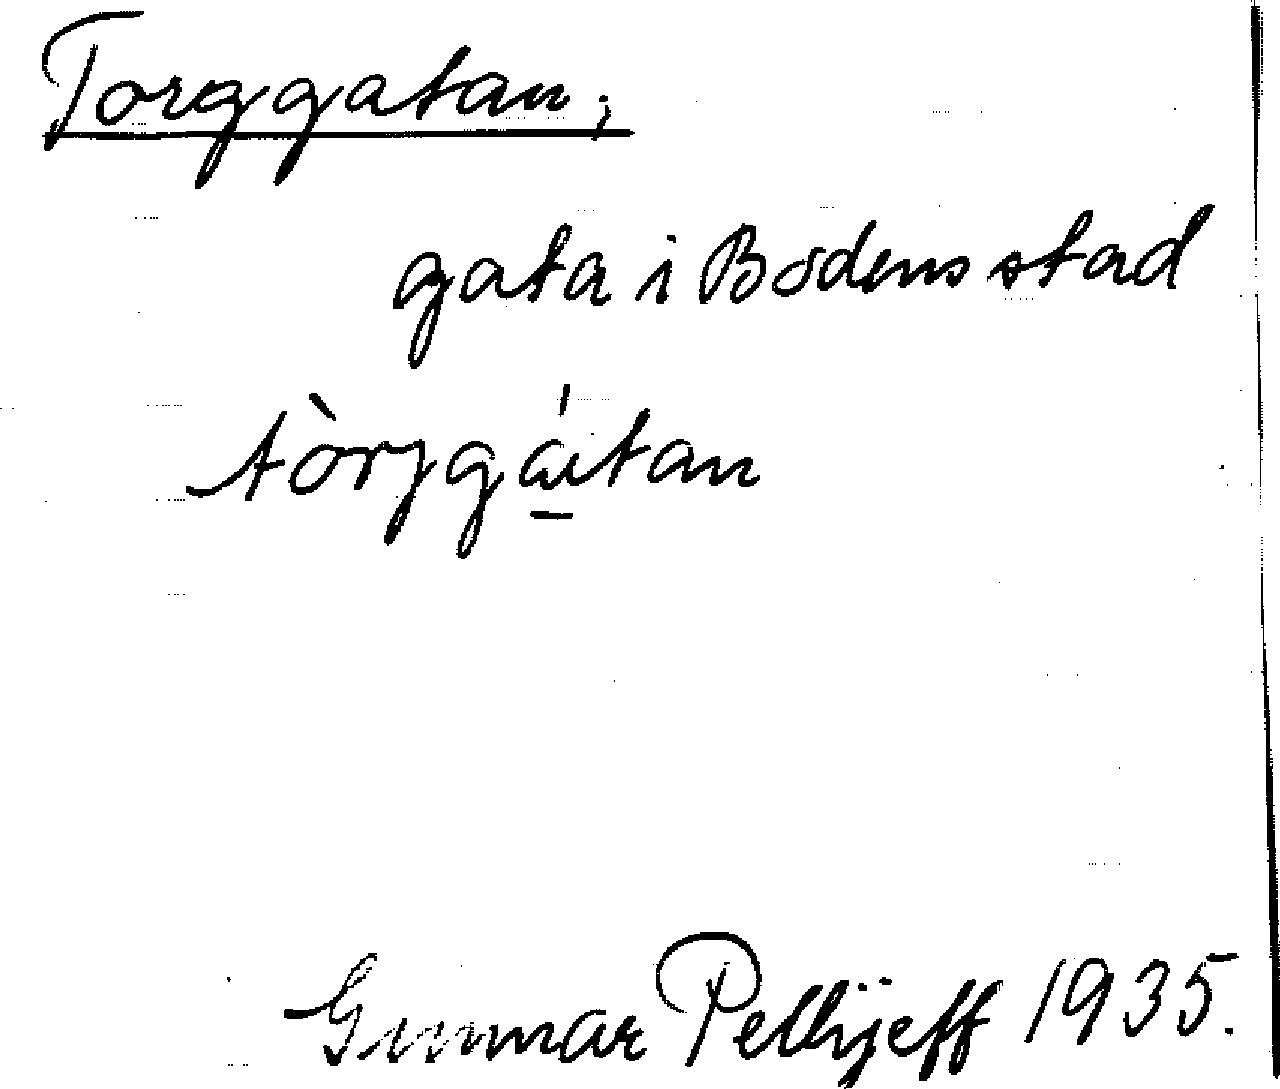 Torggatan;
gata i Bodens stad
tòrjgátan
Gunnar Pellijeff 1935.